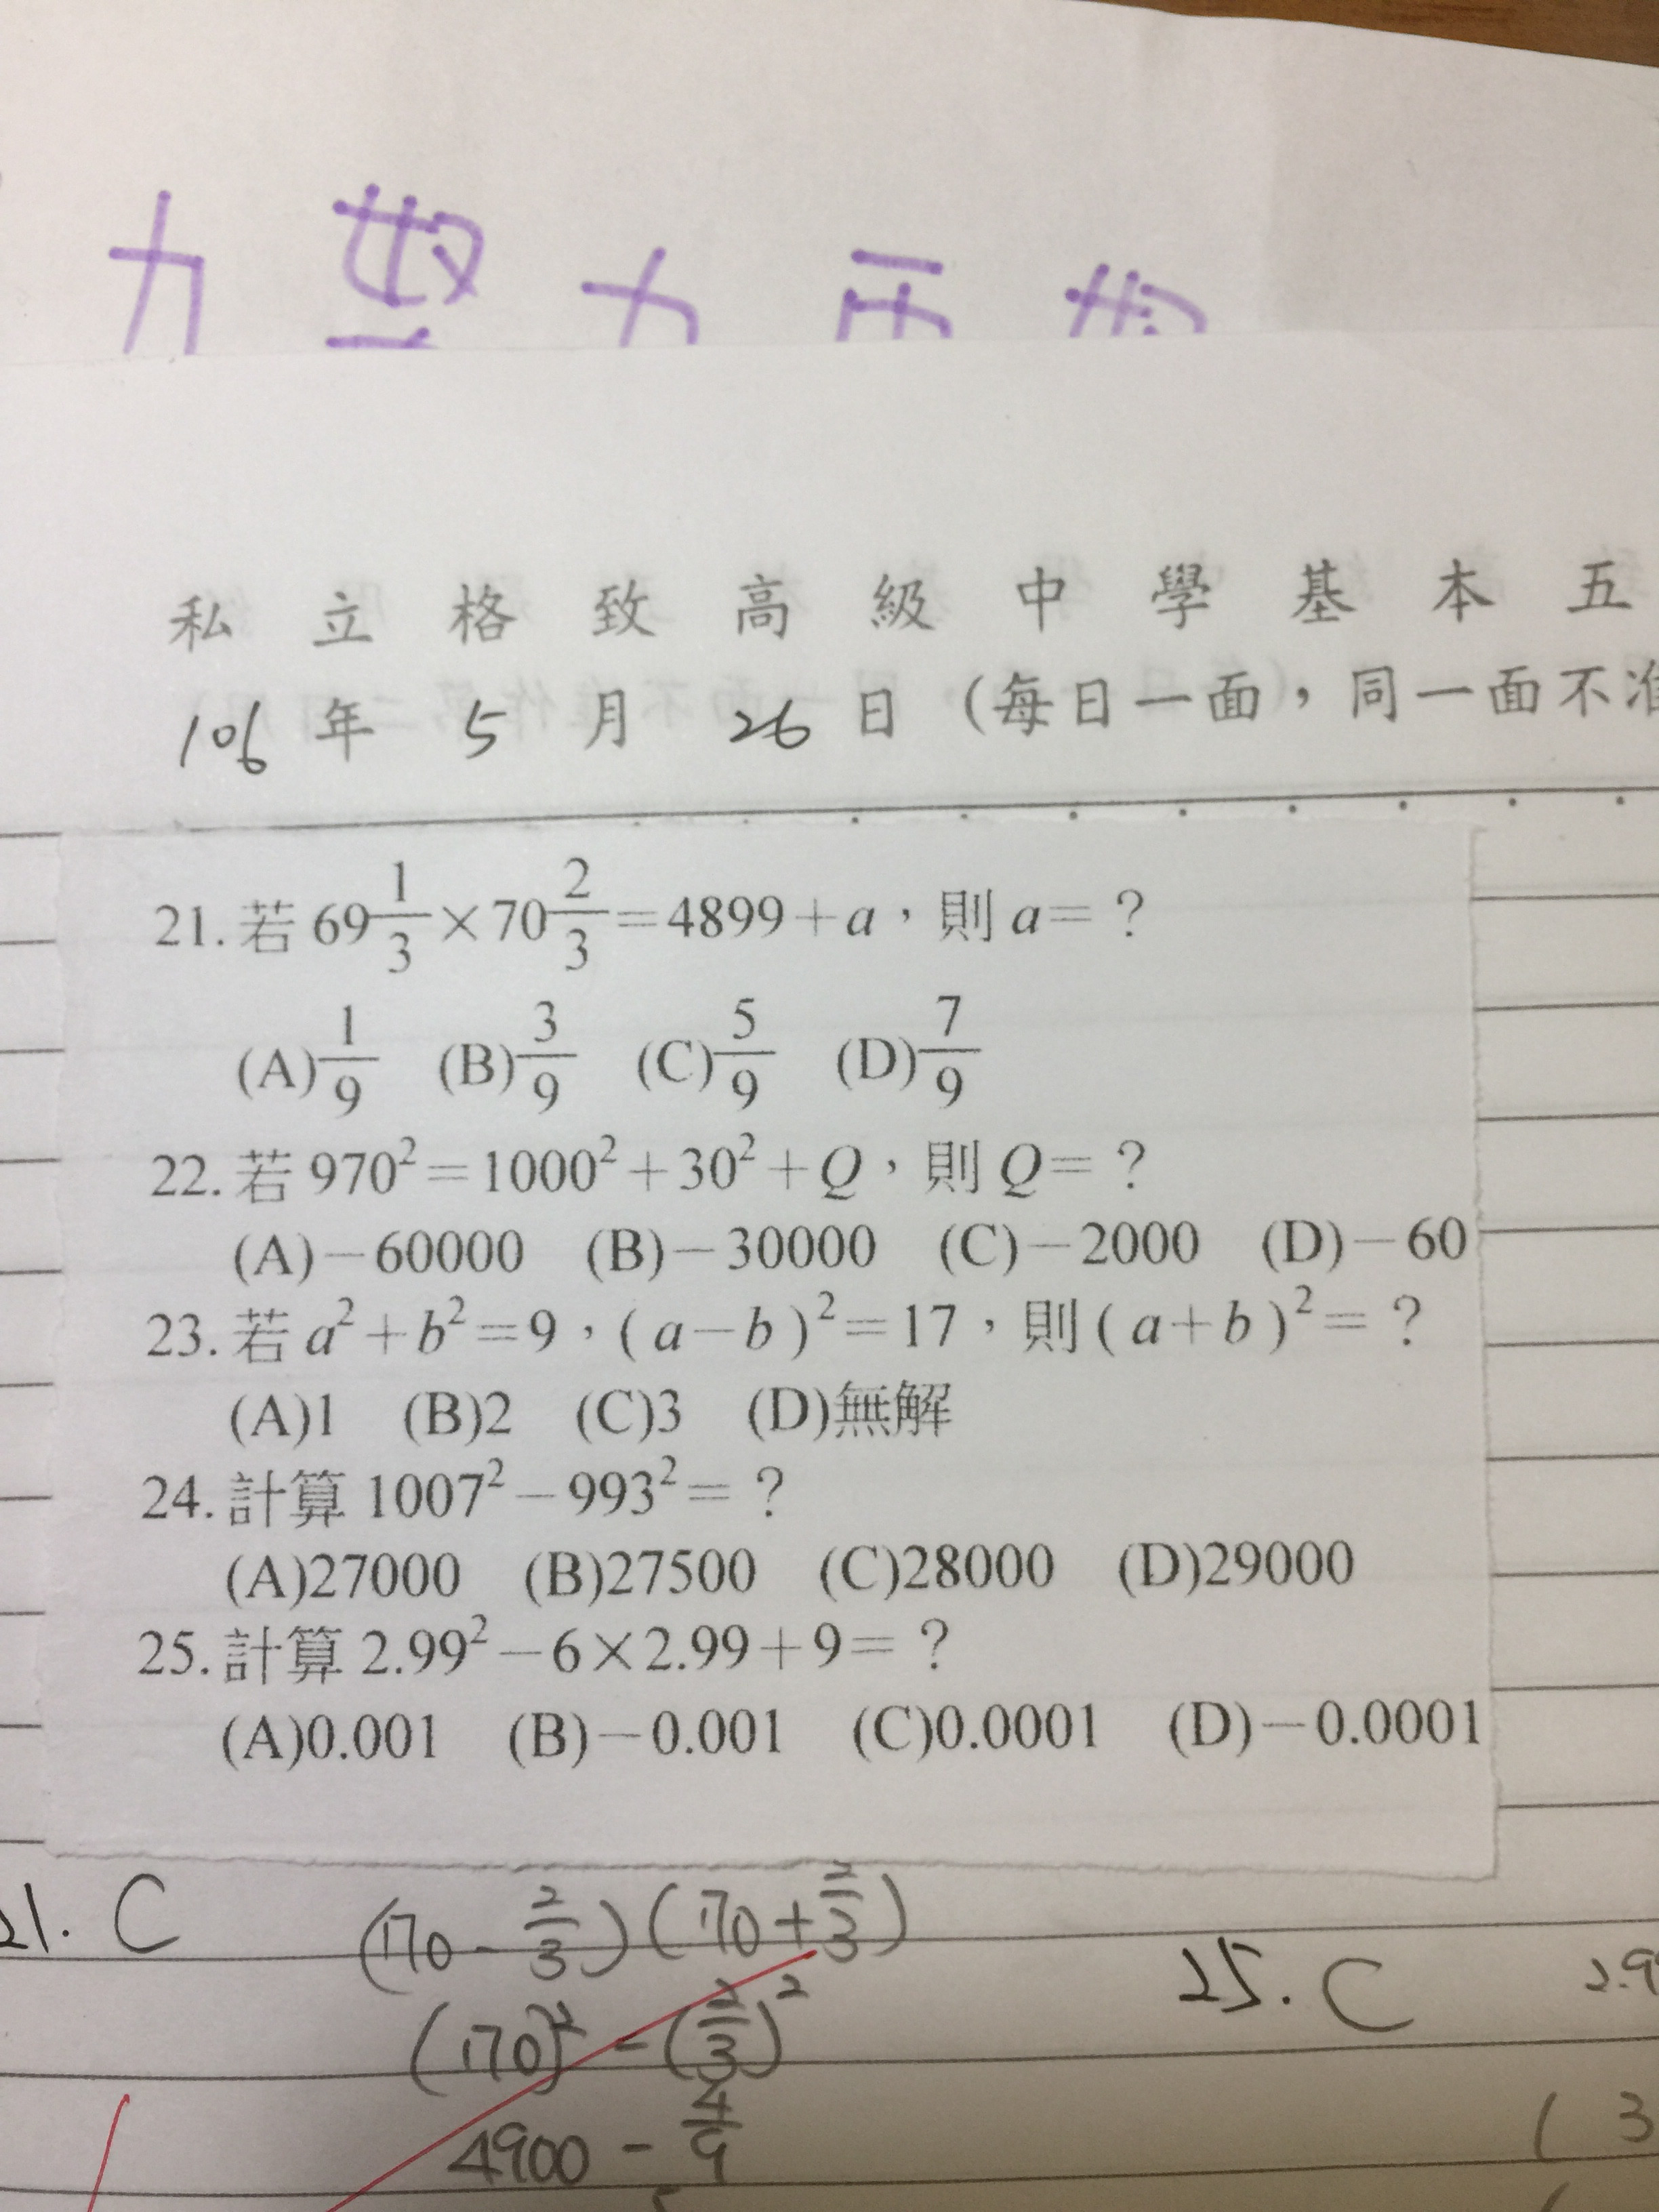 私立格致高級中學基本五
106年5月26日(每日一面，同一面不准
21.若69 1/3×70 2/3=4899+a，則a=？
(A)1/9 (B)3/9 (C)5/9 (D)7/9
22.若970²=1000²+30²+Q，則Q=？
(A)-60000 (B)-30000 (C)-2000 (D)-60
23.若a²+b²=9，(a-b)²=17，則(a+b)²=？
(A)1 (B)2 (C)3 (D)無解
24.計算1007²-993²=？
(A)27000 (B)27500 (C)28000 (D)29000
25.計算2.99²-6×2.99+9=？
(A)0.001 (B)-0.001 (C)0.0001 (D)-0.0001
21. C (70-2/3)(70+2/3)
(70)²-(2/3)²
4900-4/9
25. C 2.9
(3